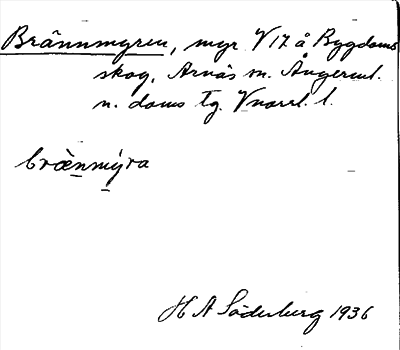 Brännmyren, myr V 17 å Bygdoms
skog, Arnäs sn. Ångerml.
n. doms tg. Vnorrl. l.
bræ̀nmýra
H A Söderberg 1936